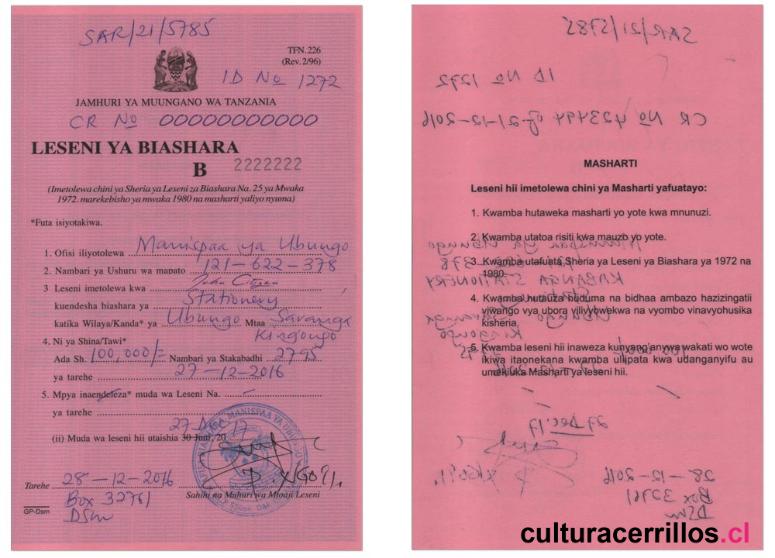 SAR/21/5785
TFN. 226
(Rev. 2/96)
ID No 1272
JAMHURI YA MUUNGANO WA TANZANIA
CR No 00000000000
LESENI YA BIASHARA
B 2222222
(Imetolewa chini ya Sheria ya Leseni za Biashara Na. 25 ya Mwaka
1972. marekebisho ya mwaka 1980 na masharti yaliyo nyuma)
*Futa isiyotakiwa.
1. Ofisi iliyotolewa Manispaa ya Ubungo
2. Nambari ya Ushuru wa mapato 121-622-378
3 Leseni imetolewa kwa John Citizen
kuendesha biashara ya Stationery
katika Wilaya/Kanda* ya Ubungo Mtaa Saranga
Kingongo
4. Ni ya Shina/Tawi*
Ada Sh. 100,000/- Nambari ya Stakabadhi 2795
ya tarehe 27-12-2016
5. Mpya inaendeleza* muda wa Leseni Na.
ya tarehe
27 Dec 17
(ii) Muda wa leseni hii utaishia 30 Juni, 20
MANISPAA YA UBUNGO
Tarehe 28-12-2016
Sahihi na Muhuri wa Mtoaji Leseni
Box 32761
DSM
GP-Dsm
SAR/21/5785
ID No 1272
CR No 423494 of 21-12-2016
MASHARTI
Leseni hii imetolewa chini ya Masharti yafuatayo:
1. Kwamba hutaweka masharti yo yote kwa mnunuzi.
2. Kwamba utatoa risiti kwa mauzo yo yote.
3. Kwamba utafuata Sheria ya Leseni ya Biashara ya 1972 na
1980.
4. Kwamba hutauza huduma na bidhaa ambazo hazizingatii
viwango vya ubora vilivyowekwa na vyombo vinavyohusika
kisheria.
5. Kwamba leseni hii inaweza kunyang'anywa wakati wo wote
ikiwa itaonekana kwamba ulipata kwa udanganyifu au
umekiuka Masharti ya leseni hii.
KABANGA STATIONERY
27 Dec 17
28-12-2016
Box 32761
DSM
culturacerrillos.cl